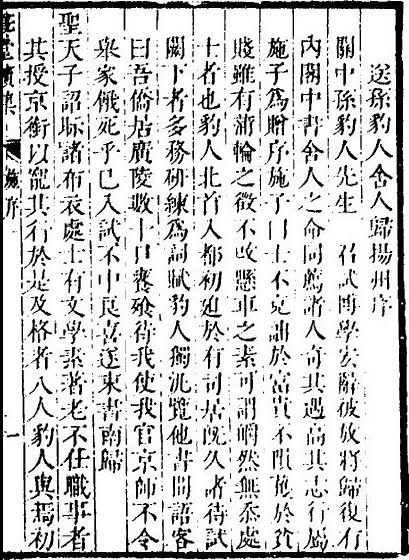 送孫豹人舍人歸揚州序
關中孫豹人先生 召試博學宏辭被放將歸復有
內閣中書舍人之命同薦諸人奇其遇高其志行屬
施子為贈序施子曰士不克詘於富貴不隕穫於貧
賤雖有蒲輪之徵不改懸車之素可謂皭然無忝處
士者也豹人北首入都初廹於有司居既久諸待試
闕下者多務研練為詞賦豹人獨泛覽他書間語客
曰吾僑居廣陵數十口饔飧待我使我官京師不令
舉家餓死乎已入試不中良喜遂束書南歸
聖天子詔眎諸布衣處士有文學素著老不任職事者
其授京銜以寵其行於是及格者八人豹人與焉初
堂續集 施序 一